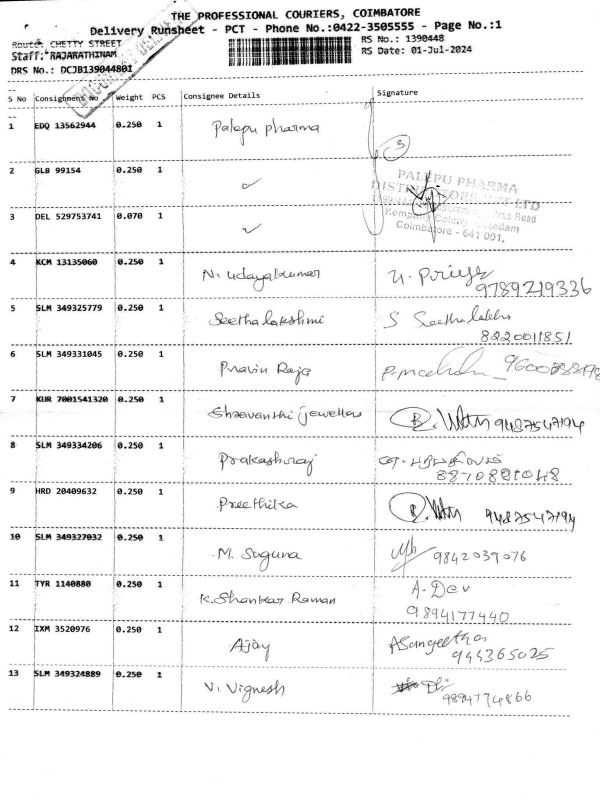 THE PROFESSIONAL COURIERS, COIMBATORE
Delivery Runsheet - PCT - Phone No.:0422-3505555 - Page No.:1
Route: CHETTY STREET
RS No.: 1390448
Staff: RAJARATHINAM
RS Date: 01-Jul-2024
DRS No.: DCJB139044801
S No Consignment No Weight PCS Consignee Details Signature
1 EDQ 13562944 0.250 1 Palepu pharma
2 GLB 99154 0.250 1 ✓
PALEPU PHARMA
3 DEL 529753741 0.070 1 ✓
Coimbatore - 641 001.
4 KCM 13135060 0.250 1 N. Udayakumar U. Priya
9789219336
5 SLM 349325779 0.250 1 Seethalakshmi S Seethalakhs
8220011851
6 SLM 349331045 0.250 1 Pravin Raja
7 KUR 7001541320 0.250 1 Shravanthi jewellers 9487547194
8 SLM 349334206 0.250 1 Prakashraj
8870891048
9 HRD 20409632 0.250 1 Preethika 9487547194
10 SLM 349327032 0.250 1 M. Suguna 9842039076
11 TYR 1140880 0.250 1 K. Shankar Raman A. Dev
9894177440
12 IXM 3520976 0.250 1 Ajay ASangeetha
944365025
13 SLM 349324889 0.250 1 V. Vignesh
9894774866